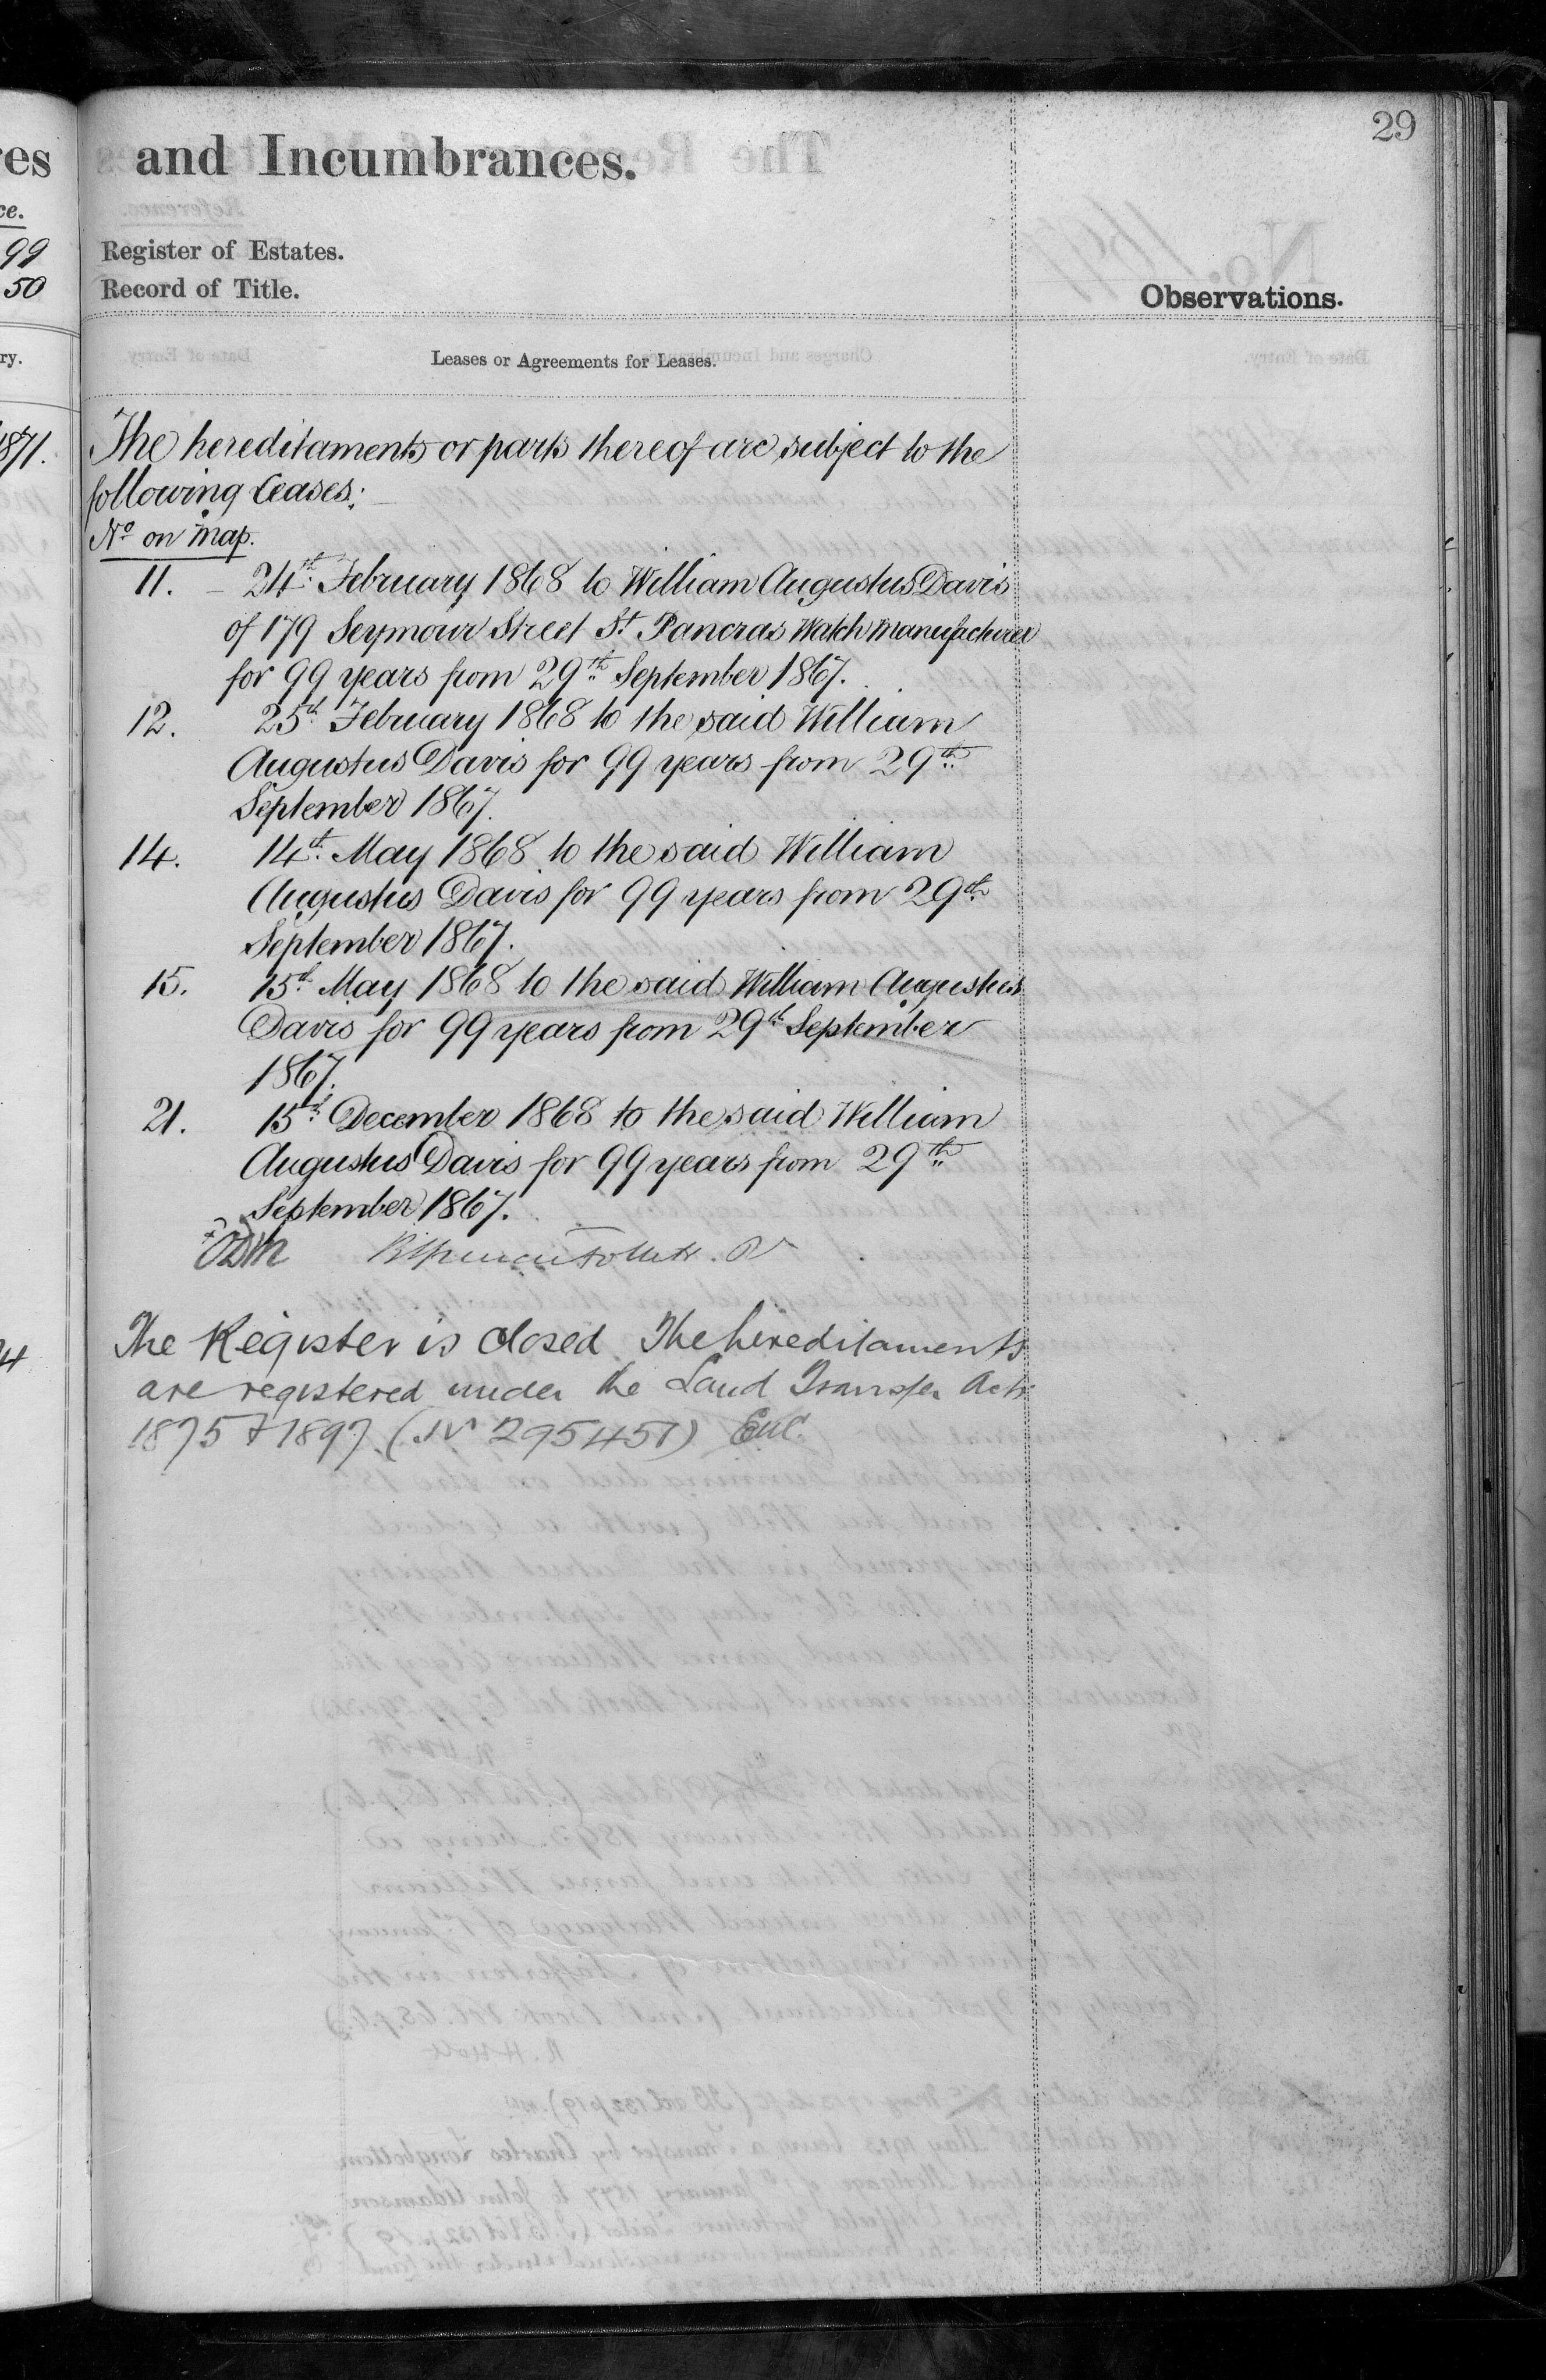 29
res
and Incumbrances.
ce.
99
Register of Estates.
50
Record of Title.
Observations.
ry.
Leases or Agreements for Leases.
1871.
The hereditaments or parts thereof are subject to the
following Leases:
No on Map.
11. – 24th February 1868 to William Augustus Davis
of 179 Seymour Street St Pancras Watch Manufacturer
for 99 years from 29th September 1867.
12. 25th February 1868 to the said William
Augustus Davis for 99 years from 29th
September 1867.
14. 14th May 1868 to the said William
Augustus Davis for 99 years from 29th
September 1867.
15. 15th May 1868 to the said William Augustus
Davis for 99 years from 29th September
1867.
21. 15th December 1868 to the said William
Augustus Davis for 99 years from 29th
September 1867.
The Register is closed. The hereditaments
are registered under the Land Transfer Acts
1875 & 1897